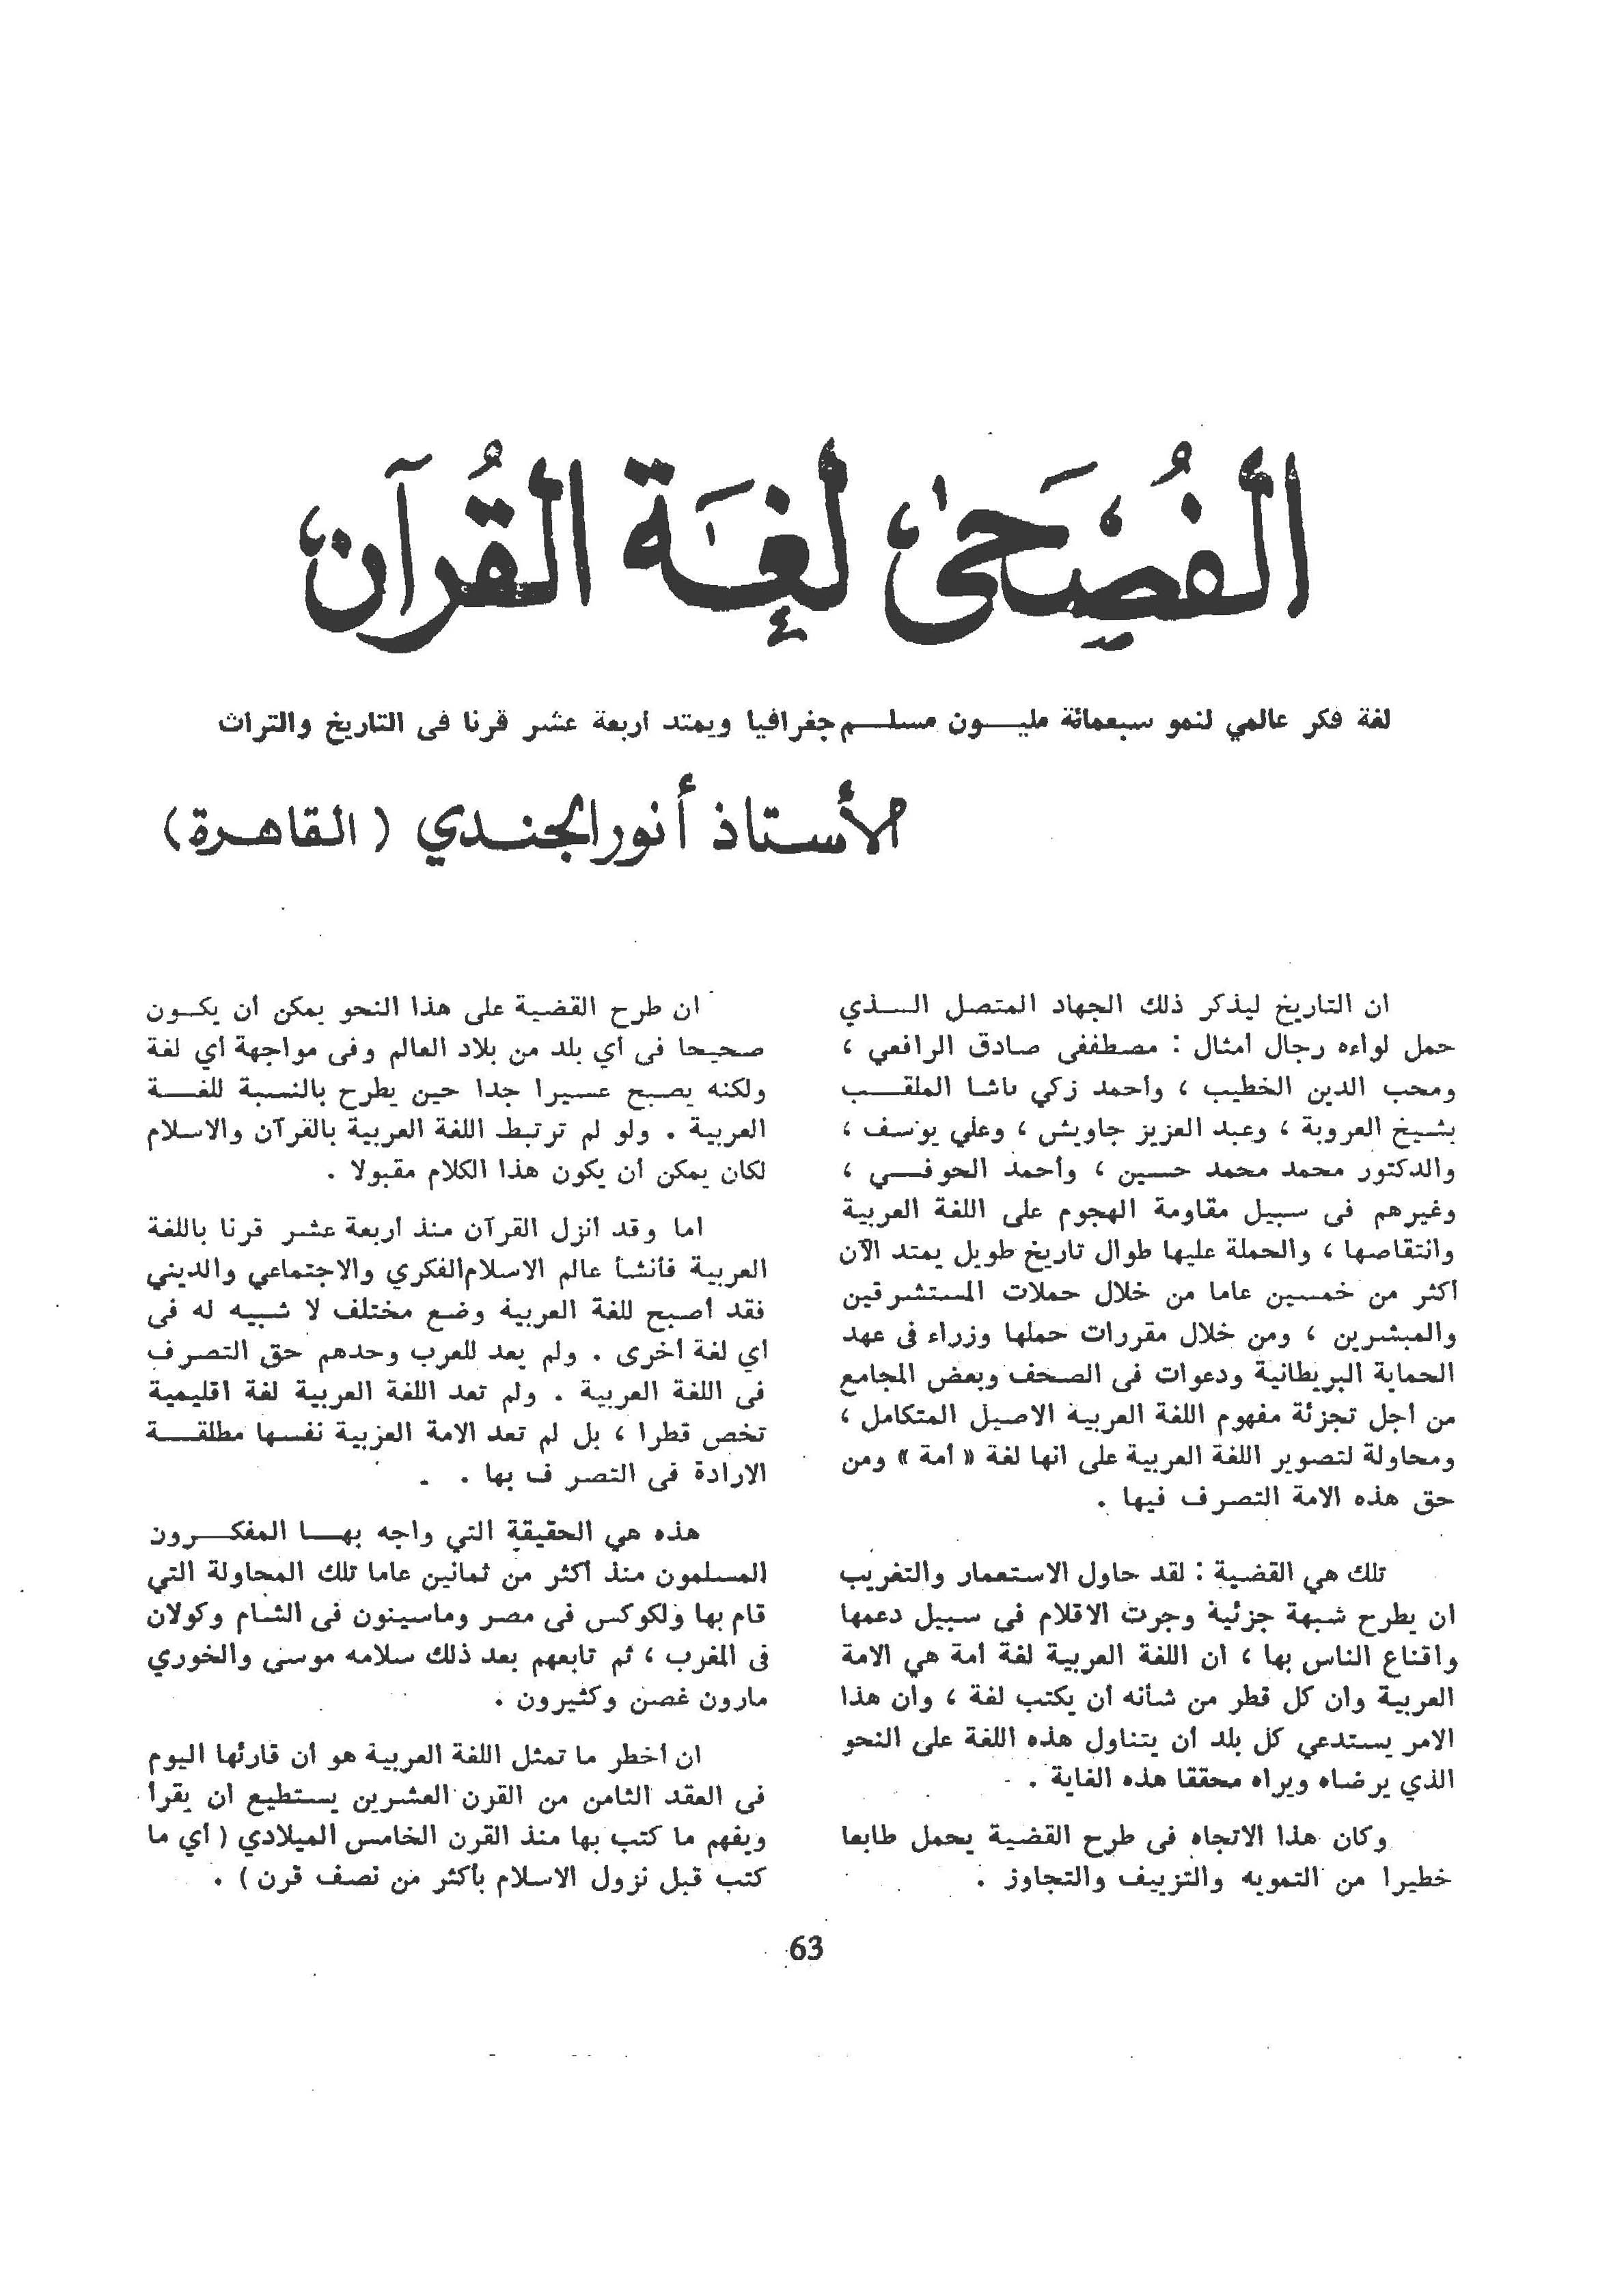 الفُصْحَىٰ لُغَة القُرآن
لغة فكر عالمي لنمو سبعمائة مليون مسلم جغرافيا ويمتد اربعة عشر قرنا فى التاريخ والتراث
الأستاذ أنور الجندي (القاهرة)
ان التاريخ ليذكر ذلك الجهاد المتصل الذي
حمل لواءه رجال أمثال : مصطففى صادق الرافعي ،
ومحب الدين الخطيب ، وأحمد زكي باشا الملقب
بشيخ العروبة ، وعبد العزيز جاويش ، وعلي يوسف ،
والدكتور محمد محمد حسين ، وأحمد الحوفي ،
وغيرهم فى سبيل مقاومة الهجوم على اللغة العربية
وانتقاصها ، والحملة عليها طوال تاريخ طويل يمتد الآن
أكثر من خمسين عاما من خلال حملات المستشرقين
والمبشرين ، ومن خلال مقررات حملها وزراء فى عهد
الحماية البريطانية ودعوات فى الصحف وبعض المجامع
من أجل تجزئة مفهوم اللغة العربية الاصيل المتكامل ،
ومحاولة لتصوير اللغة العربية على انها لغة « أمة » ومن
حق هذه الامة التصرف فيها .
تلك هي القضية : لقد حاول الاستعمار والتغريب
ان يطرح شبهة جزئية وجرت الاقلام فى سبيل دعمها
واقناع الناس بها ، ان اللغة العربية لغة أمة هي الامة
العربية وان كل قطر من شأنه أن يكتب لغة ، وأن هذا
الامر يستدعي كل بلد أن يتناول هذه اللغة على النحو
الذي يرضاه ويراه محققا هذه الغاية .
وكان هذا الاتجاه فى طرح القضية يحمل طابعا
خطيرا من التمويه والتزييف والتجاوز .
ان طرح القضية على هذا النحو يمكن أن يكون
صحيحا فى أي بلد من بلاد العالم وفى مواجهة أي لغة
ولكنه يصبح عسيرا جدا حين يطرح بالنسبة للغة
العربية . ولو لم ترتبط اللغة العربية بالقرآن والاسلام
لكان يمكن أن يكون هذا الكلام مقبولا .
اما وقد انزل القرآن منذ اربعة عشر قرنا باللغة
العربية فأنشأ عالم الاسلام الفكري والاجتماعي والديني
فقد أصبح للغة العربية وضع مختلف لا شبيه له فى
أي لغة أخرى . ولم يعد للعرب وحدهم حق التصرف
فى اللغة العربية . ولم تعد اللغة العربية لغة اقليمية
تخص قطرا ، بل لم تعد الامة العربية نفسها مطلقة
الارادة فى التصرف بها .
هذه هي الحقيقة التي واجه بها المفكرون
المسلمون منذ أكثر من ثمانين عاما تلك المحاولة التي
قام بها ولكوكس فى مصر وماسينون فى الشام وكولان
فى المغرب ، ثم تابعهم بعد ذلك سلامه موسى والخوري
مارون غصن وكثيرون .
ان أخطر ما تمثل اللغة العربية هو أن قارئها اليوم
فى العقد الثامن من القرن العشرين يستطيع ان يقرأ
ويفهم ما كتب بها منذ القرن الخامس الميلادي ( أي ما
كتب قبل نزول الاسلام بأكثر من نصف قرن ) .
63